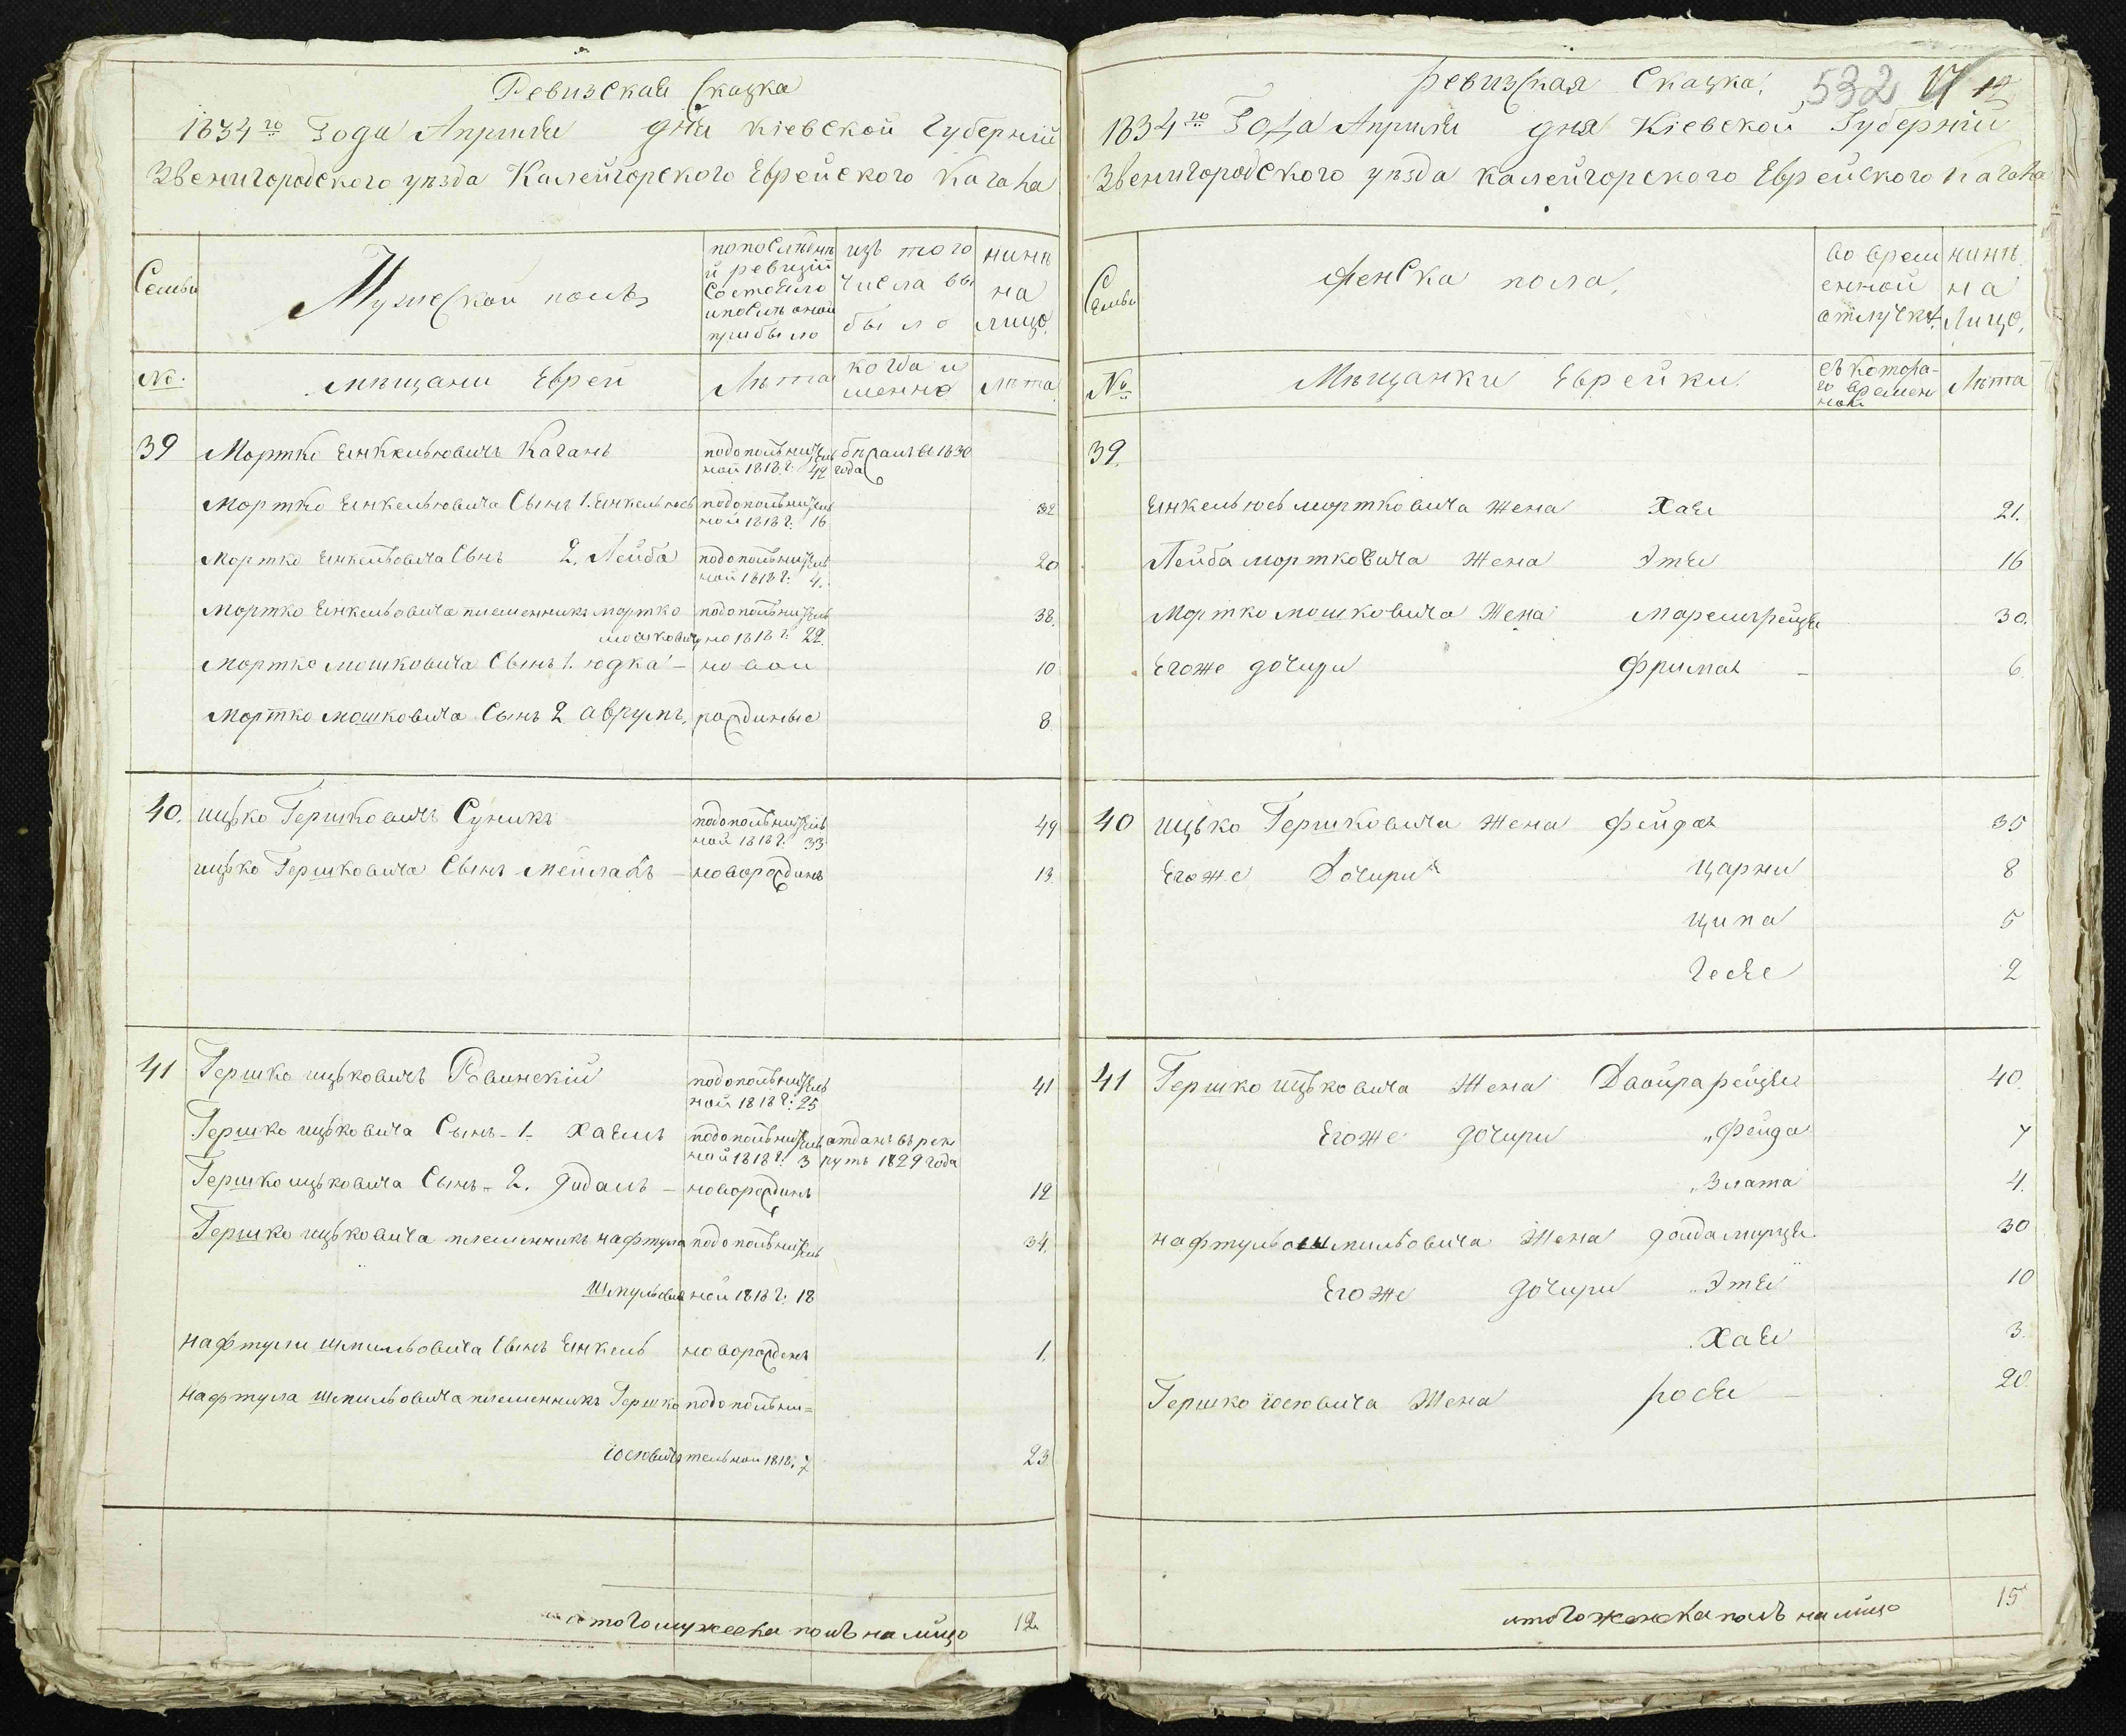 Ревизская Сказка
1834го Года Апреля дня Кіевской Губерніи
Звенигородского уѣзда Калейгорского Еврейского Кагала
Семьи
Мужеской полъ
по послѣдне
й ревизіи
состояло
и послѣ оной
прибыло
изъ того
числа вы
было
нинѣ
на
лицо.
№:
мѣщани Евреи
Лѣта
когда и
менно
Лѣта
39 Мортко Енкельовичъ Каганъ
ной 1818 г: 42 года
Мортко Енкельовича Сынъ 1. Енкель юсь
ной 1818 г: 16
32
Мортко Енкельовича Сынъ 2. Лейба
ной 1818 г: 4.
20
Мортко Енкельовича племенникъ Мортко
мошковичъ но 1818 г: 22.
38.
Мортко мошковича Сынъ 1. юдка – ново
10
Мортко мошковича Сынъ 2 аврумъ, рождиные
8.
40. ицько Гершковичъ Суникъ
ной 1818 г: 33
49
ицько Гершковича Сынъ мейлахъ – новорождинъ
13.
41 Гершко ицьковичъ Ровинскій
ной 1818 г: 25
41
Гершко ицьковича Сынъ – 1. Хаемъ отданъ въ рек
ной 1818 г: 3 рутъ 1829 года
Гершко ицьковича Сынъ – 2. дидалъ – новорождинъ
12
Гершко ицьковича племенникъ нафтула
34.
ной 1818 г: 18
нафтули шмильовича Сынъ Енкель новорожденъ
1.
нафтула шмильовича племенникъ Гершко подополни=
юсьовичъ тельной 1818. 7
23.
итого мужеска полъ на лицо 12
Ревизская Сказка.
532 17
1834го Года Апреля дня Кіевской Губерніи
Звенигородского уѣзда калейгорского Еврейского кагала
Семьи
Женска пола,
во врем
енной
отлучке,
нинѣ
на
Лицо,
№
Мѣщанки Еврейки
съ котора-
го времен
Лѣта
39.
Енкель юсь мортковича жена Хая 21.
Лейба мортковича жена Этя 16
Мортко мошковича жена 30.
Егоже дочири Фрима – 6.
40 ицько Гершковича жена Фейга 35
Егоже Дочири царни 8
ципа 5
Геся 2
41 Гершко ицьковича Жена Двойра рейзя 40.
Егоже дочири „Фейга 7
„Злата 4.
нафтуль шмильовича Жена голда мирця 30
Егоже дочири „Этя 10
„Хая 3.
Гершко юсьовича Жена рося – 20.
итого женска полъ на лицо 15